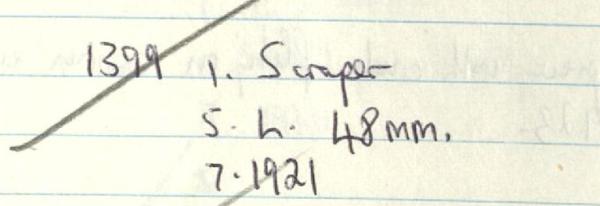 1399 1. Scraper
5. h. 48mm.
7. 1921